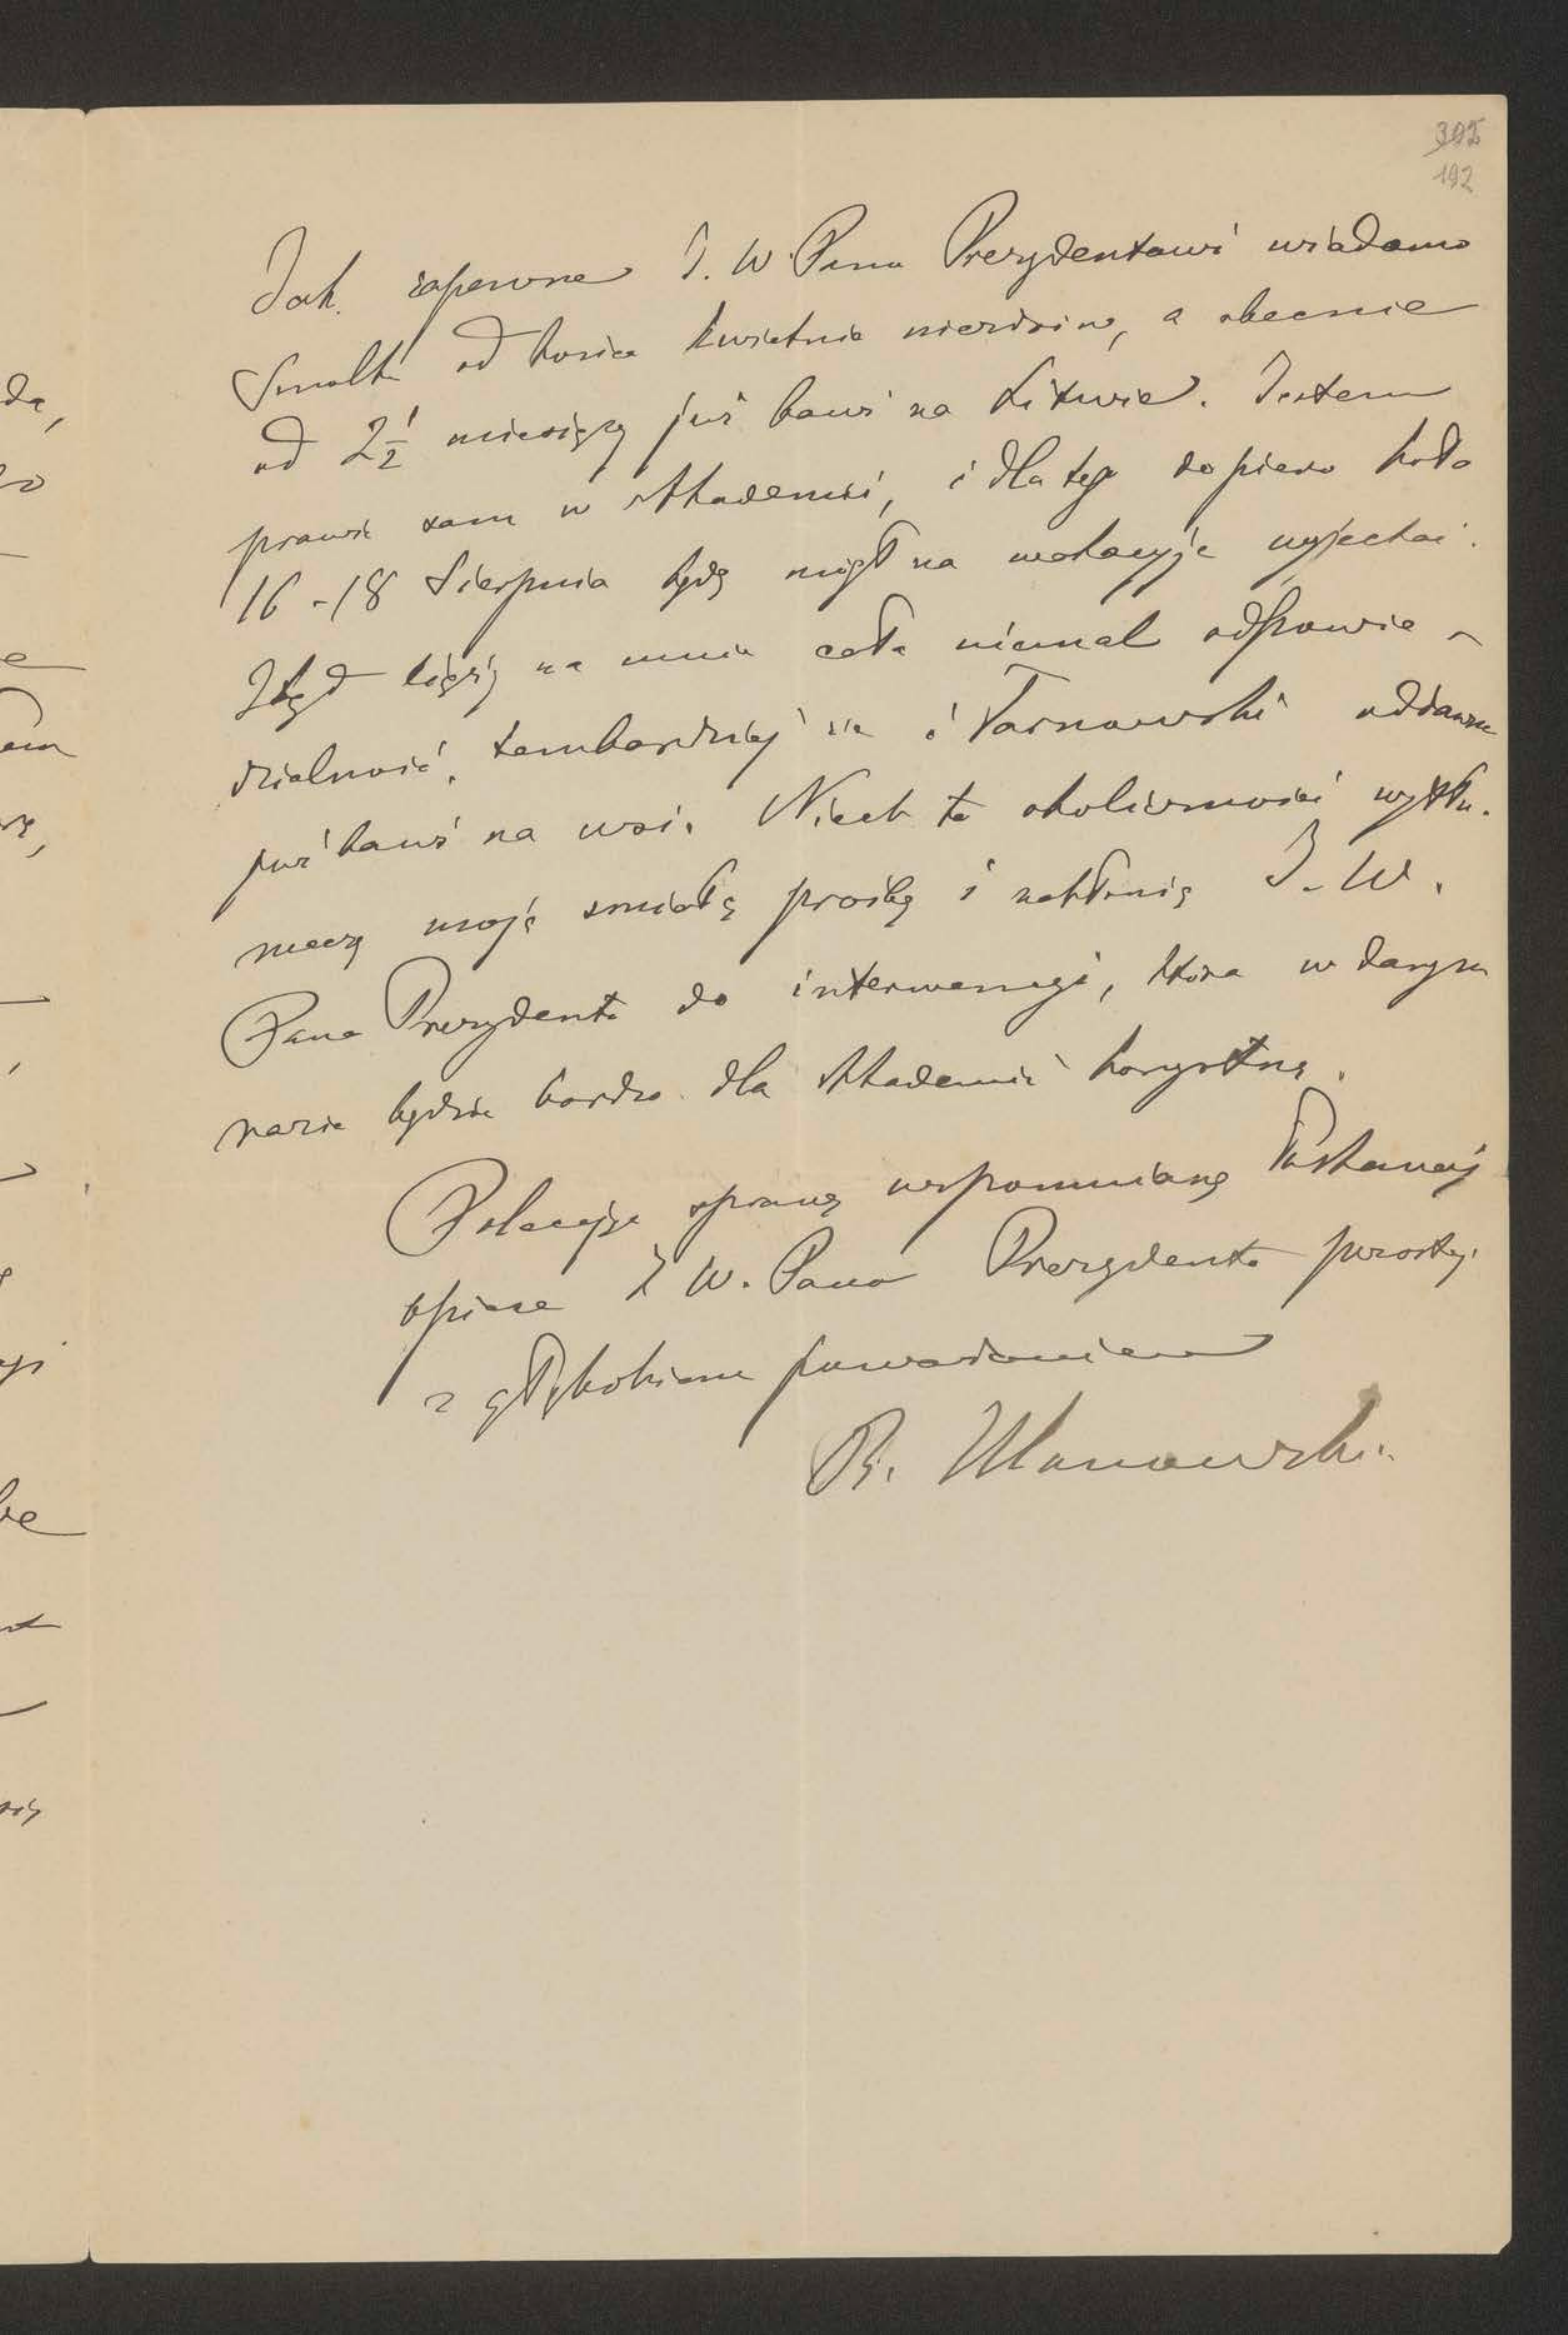 392
192
Jak zapewne J. W. Panu Prezydentowi wiadomo
Smolka od końca kwietnia niezdrów, a obecnie
od 2½ miesięcy już bawi na Litwie. Jestem
prawie sam w Akademii, i dlatego dopiero koło
16-18 Sierpnia będę mógł na wakacyje wyjechać.
Ztąd ciąży na mnie cała niemal odpowie-
dzialność, tembardziej że i Tarnowski oddawna
już bawi na wsi. Niech te okoliczności wytłu-
maczą moją śmiałą prośbę i nakłonią J. W.
Pana Prezydenta do interwencyi, która w danym
razie będzie bardzo dla Akademii korzystną.
Polecając sprawę wspomnianą łaskawej
opiece J W. Pana Prezydenta
z głębokiem poważaniem
B. Ulanowski.